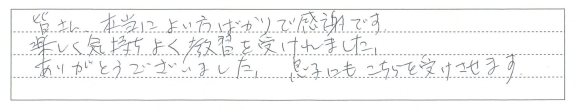 皆さん、本当によい方ばかりで感謝です。
楽しく気持ちよく教習を受けれました。
ありがとうございました。息子にもこちらを受けさせます。